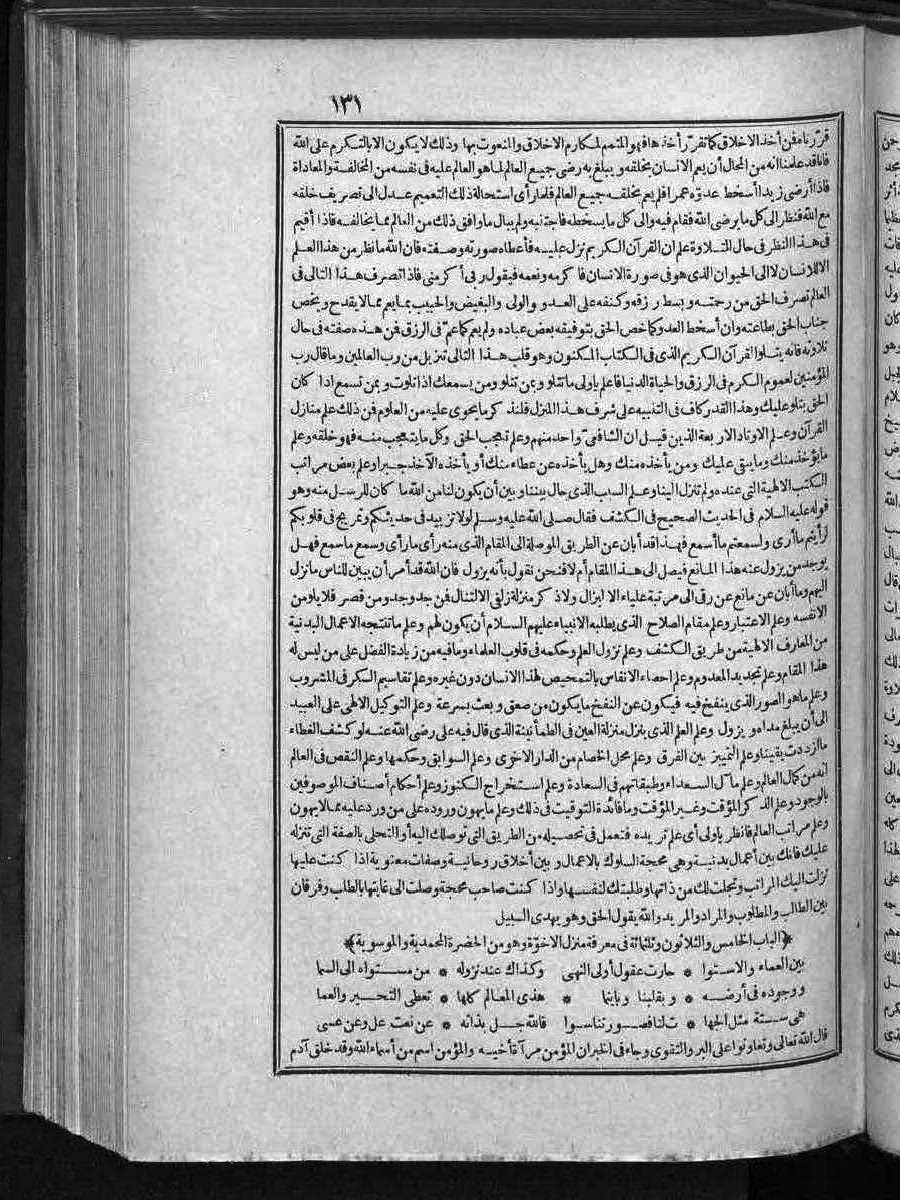 ١٣١
قررناه فمن أخذ الاخلاق كما تقرر أخذها فهو المتمم لمكارم الاخلاق والمنعوت بها وذلك لا يكون الا بالتكرم على الله
فانا قد علمنا انه من المحال أن يعم الانسان بخلقه ويبلغ به رضى جميع العالم لما هو العالم عليه فى نفسه من المخالفة والمعاداة
فاذا أرضى زيدا أسخط عدوّه عمرا فلم يعم بخلقه جميع العالم فلما رأى استحالة ذلك التعميم عدل الى تصريف خلقه
مع الله فنظر الى كل ما يرضى الله فقام فيه والى كل ما يسخطه فاجتنبه ولم يبال ما وافق ذلك من العالم مما يخالفه فاذا أقيم
فى هذا النظر فى حال التلاوة علم ان القرآن الكريم نزل عليه فأعطاه صورته وصفته فان الله ما نظر من هذا العلم
الا للانسان لا الى الحيوان الذى هو فى صورة الانسان فأكرمه ونعمه فيقول ربى أكرمنى فاذا تصرف هذا التالى فى
العالم تصرف الحق من رحمته وبسط رزقه وكنفه على العدو والولى والبغيض والحبيب بما يعم مما لا يقدح ويخص
جناب الحق بطاعته وان أسخط العدو كما خص الحق بتوفيقه بعض عباده ولم يعم كما عم فى الرزق فمن هذه صفته فى حال
تلاوته فانه يتلو القرآن الكريم الذى فى الكتاب المكنون وهو قلب هذا التالى تنزيل من رب العالمين وما قال رب
المؤمنين لعموم الكرم فى الرزق والحياة الدنيا فاعلم يا ولى ما تتلو وبمن تتلو ومن يسمعك اذا تلوت وبمن تسمع اذا كان
الحق يتلو عليك وهذا القدر كاف فى التنبيه على شرف هذا المنزل فلنذكر ما يحوى عليه من العلوم فمن ذلك علم منازل
القرآن وعلم الاوتاد الاربعة الذين قيل ان الشافعى واحد منهم وعلم تعجب الحق وكل ما يتعجب منه فهو خلقه وعلم
ما يؤخذ منك وما يبقى عليك ومن يأخذه منك وهل يأخذه عن عطاء منك أو يأخذه الآخذ جبرا وعلم بعض مراتب
الكتب الالهية التى عنده ولم تنزل الينا وعلم السبب الذى حال بيننا وبين أن يكون لنا من الله ما كان للرسل منه وهو
قوله عليه السلام فى الحديث الصحيح فى الكشف فقال صلى الله عليه وسلم لولا تزييد فى حديثكم وتمريج فى قلوبكم
لرأيتم ما أرى ولسمعتم ما أسمع فهذا قد أبان عن الطريق الموصلة الى المقام الذى منه رأى ما رأى وسمع ما سمع فهل
يوجد من يزول عنه هذا المانع فيصل الى هذا المقام أم لا فنحن نقول بأنه يزول فان الله قد أمر أن يبين للناس ما نزل
اليهم وما أبان عن مانع عن رقى الى مرتبة علياء الا ليزال ولا ذكر منزلة زلفى الا لتنال فمن جد وجد ومن قصر فلا يلومن
الا نفسه وعلم الاعتبار وعلم مقام الصلاح الذى يطلبه الانبياء عليهم السلام أن يكون لهم وعلم ما تنتجه الاعمال البدنية
من المعارف الالهية من طريق الكشف وعلم نزول العلم وحكمه فى قلوب العلماء وما فيه من زيادة الفضل على من ليس له
هذا المقام وعلم تجديد المعدوم وعلم احصاء الانفاس بالتمحيص لهذا الانسان دون غيره وعلم تقاسيم السكر فى المشروب
وعلم ما هو الصور الذى ينفخ فيه فيكون عن النفخ ما يكون من صعق وبعث بسرعة وعلم التوكيل الالهى على العبيد
الى أن يبلغ مداه ويزول وعلم العلم الذى ينزل منزلة العين فى الطمأنينة الذى قال فيه على رضى الله عنه لو كشف الغطاء
ما ازددت يقينا وعلم التمييز بين الفرق وعلم محل الخصام من الدار الاخرى وعلم السوابق وحكمها وعلم النقص فى العالم
انه من كمال العالم وعلم مآل السعداء وطبقاتهم فى السعادة وعلم استخراج الكنوز وعلم أحكام أصناف الموصوفين
بالوجود وعلم الذكر المؤقت وغير المؤقت وما فائدة التوقيت فى ذلك وعلم ما يهون وروده على من ورد عليه مما لا يهون
وعلم مراتب العالم فانظر يا ولى أى علم تريده فتعمل فى تحصيله من الطريق التى توصلك اليه أو التحلى بالصفة التى تنزله
عليك فانك بين أعمال بدنية وهى محجة السلوك بالاعمال وبين أخلاق روحانية وصفات معنوية اذا كنت عليها
نزلت اليك المراتب وتجلت لك من ذاتها وطلبتك لنفسها واذا كنت صاحب محجة وصلت الى غايتها بالطلب وفرقان
بين الطالب والمطلوب والمراد والمريد والله يقول الحق وهو يهدى السبيل
﴿الباب الخامس والثلاثون وثلثمائة فى معرفة منزل الاخوّة وهو من الحضرة المحمدية والموسوية﴾
بين العماء والاستوا * حارت عقول أولى النهى وكذاك عند نزوله * من مستواه الى السما
ووجوده فى أرضه * وبقلبنا وبأينما * هذى المعالم كلها * تعطى التحير والعما
هى ستة مثل الجها * ت لنا فصورتنا سوا فالله جل بذاته * عن نعت عل وعن عسى
قال الله تعالى وتعاونوا على البر والتقوى وجاء فى الخبر ان المؤمن مرآة أخيه والمؤمن اسم من أسماء الله وقد خلق آدم